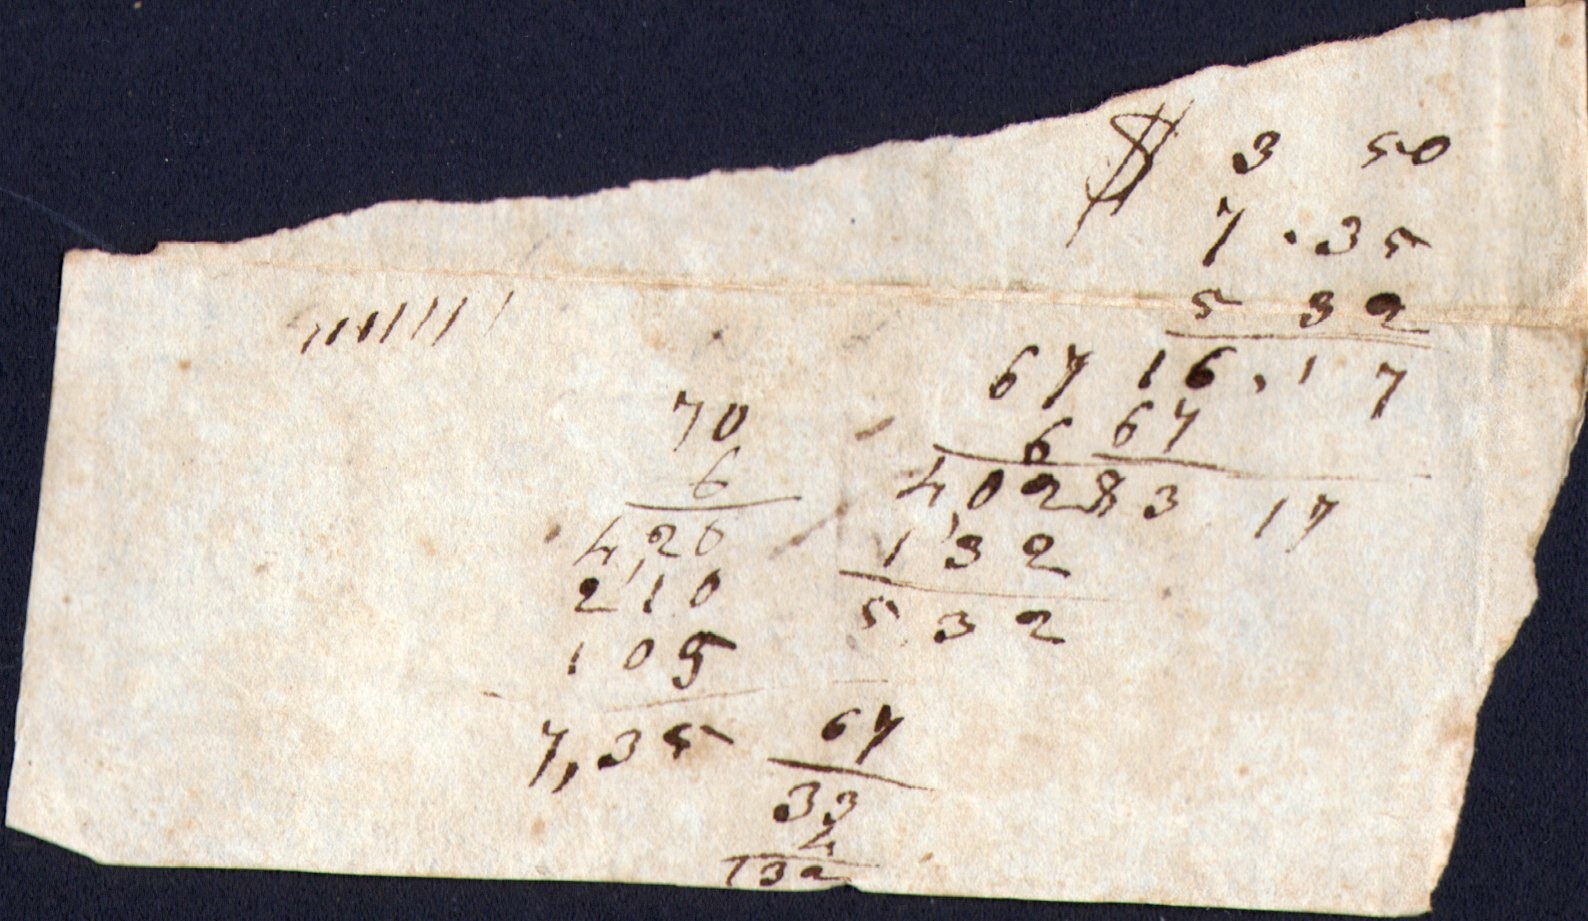 $ 3 50
7.35
5 32
16.17
67
83 17
67
6
402
132
532
70
6
4,20
2,10
105
7,35
67
33
4
132